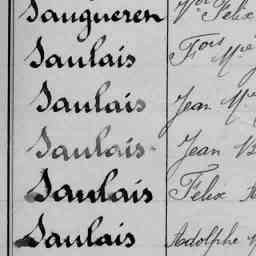 Saugueren Vor Félix
Saulais Fois Mie
Saulais Jean Mie
Saulais Jean B
Saulais Félix A
Saulais Adolphe V